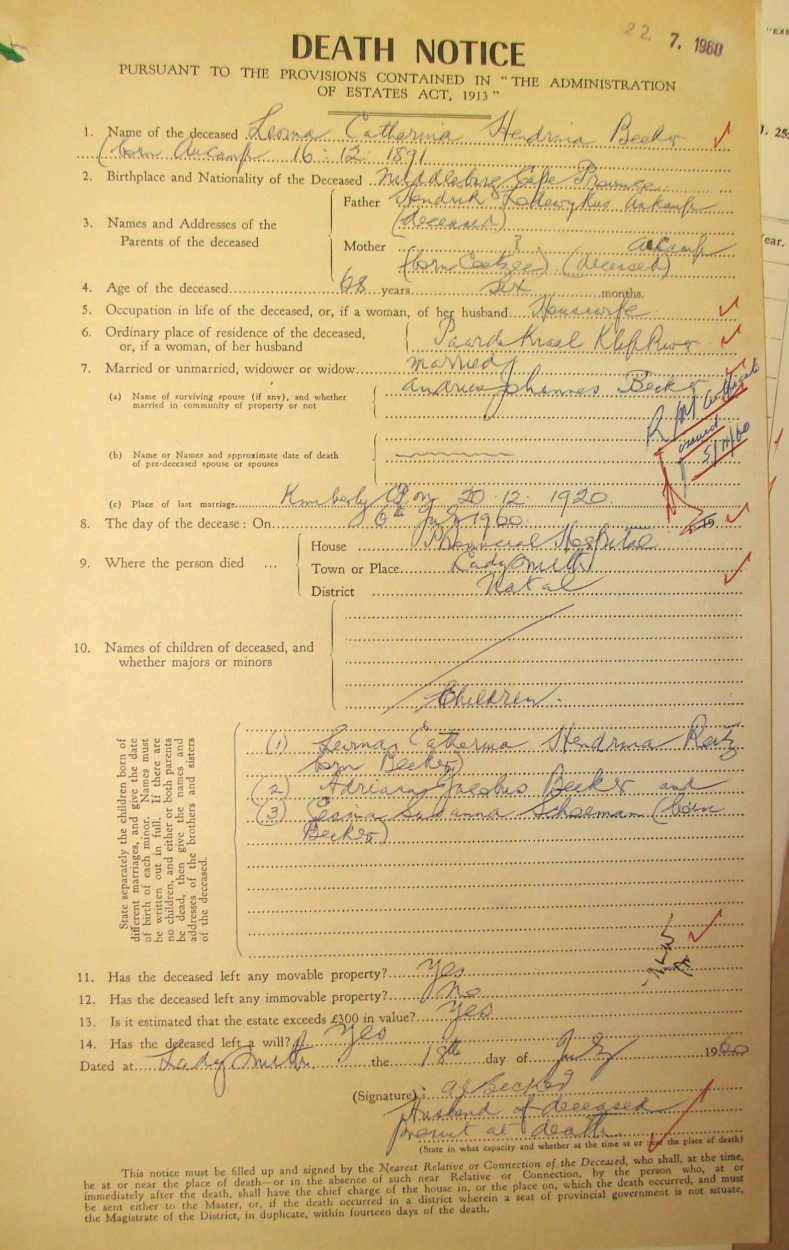 22. 7. 1960
DEATH NOTICE
PURSUANT TO THE PROVISIONS CONTAINED IN "THE ADMINISTRATION
OF ESTATES ACT, 1913"
1. Name of the deceased Leona Catherina Hendrina Becker
(born Aucamp 16.12.1891
2. Birthplace and Nationality of the Deceased Middelburg Cape Province
3. Names and Addresses of the Parents of the deceased
Father Hendrik Lodewykus Aucamp
(deceased)
Mother ? Aucamp
(born Coetzee) (deceased)
4. Age of the deceased 68 years six months.
5. Occupation in life of the deceased, or, if a woman, of her husband Housewife
6. Ordinary place of residence of the deceased,
or, if a woman, of her husband
Paardekraal Klip River
7. Married or unmarried, widower or widow married
(a) Name of surviving spouse (if any), and whether
married in community of property or not
Andries Johannes Becker
issued
5/10/60
(b) Name or Names and approximate date of death
of pre-deceased spouse or spouses
(c) Place of last marriage Kimberly CP on 20.12.1920
8. The day of the decease: On 6th July 1960
9. Where the person died ...
House Provincial Hospital
Town or Place Ladysmith
District Natal
10. Names of children of deceased, and
whether majors or minors
Children.
State separately the children born of
different marriages, and give the date
of birth of each minor. Names must
be written out in full. If there are
no children, and either or both parents
be dead, then give the names and
addresses of the brothers and sisters
of the deceased.
(1) Catherina Hendrina Reitz
born Becker)
(2) Adriaan Jacobus Becker and
(3) Susanna Schoeman (born
Becker)
11. Has the deceased left any movable property? Yes
12. Has the deceased left any immovable property? No
13. Is it estimated that the estate exceeds £300 in value? Yes
14. Has the deceased left a will? Yes
Dated at Ladysmith, the 18th day of July 1960
(Signature) AJ Becker
Husband of deceased
present at death
(State in what capacity and whether at the time at or near the place of death)
This notice must be filled up and signed by the Nearest Relative or Connection of the Deceased, who shall, at the time,
be at or near the place of death—or in the absence of such near Relative or Connection, by the person who, at or
immediately after the death, shall have the chief charge of the house in, or the place on, which the death occurred, and must
be sent either to the Master, or, if the death occurred in a district wherein a seat of provincial government is not situate,
the Magistrate of the District, in duplicate, within fourteen days of the death.